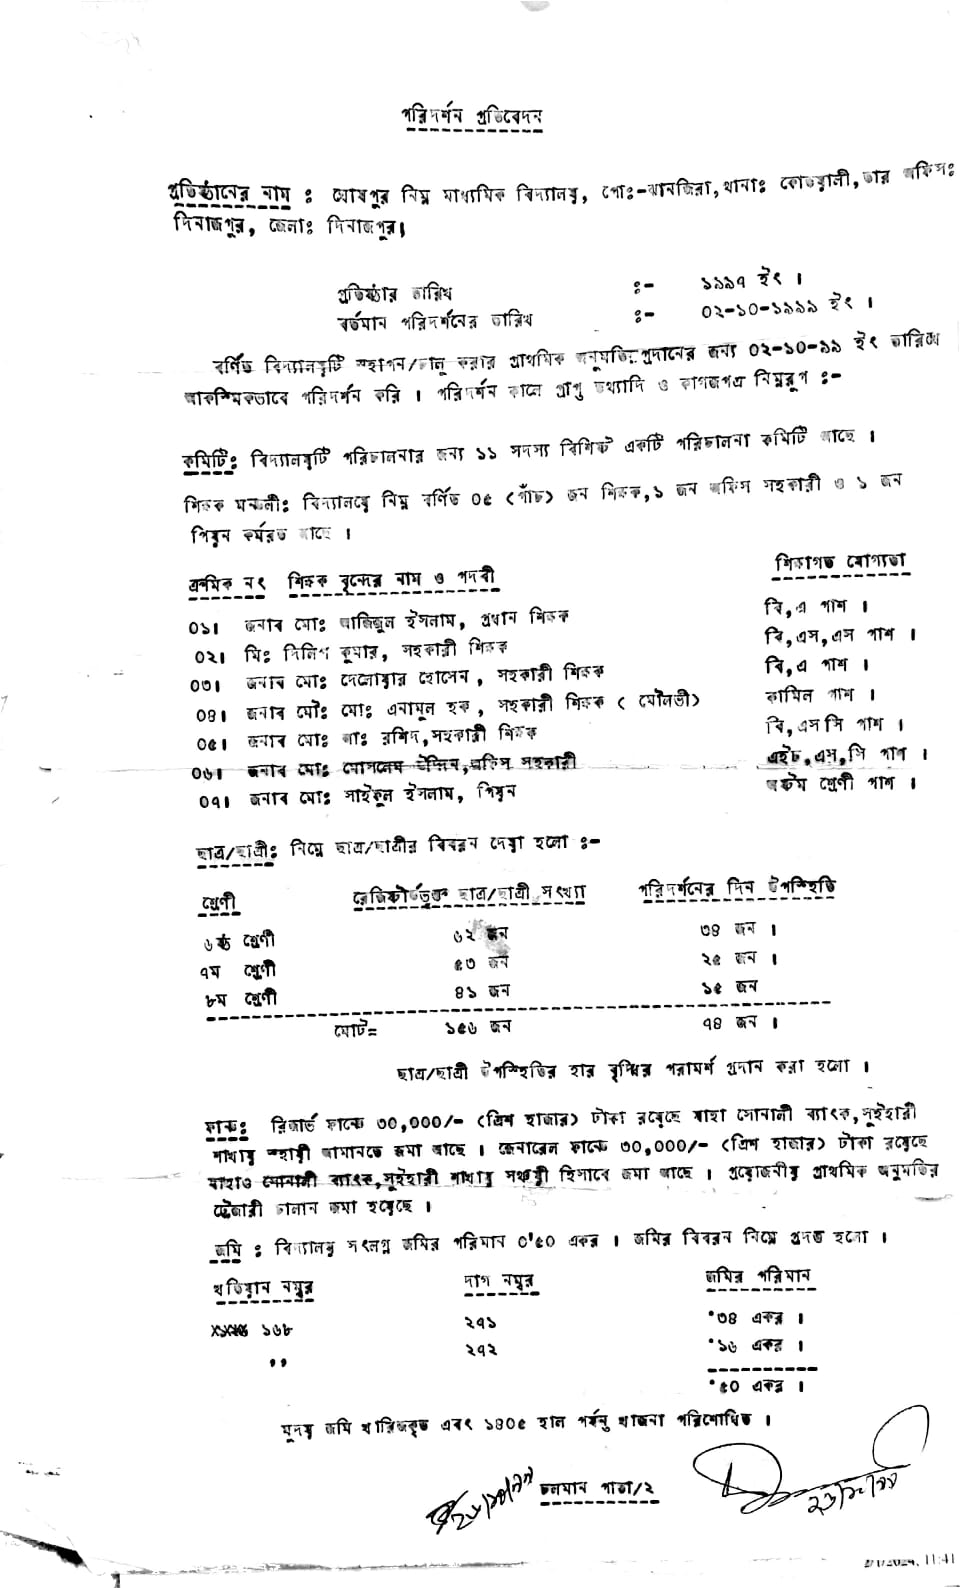 পরিদর্শন প্রতিবেদন
প্রতিষ্ঠানের নাম : ঘোষপুর নিম্ন মাধ্যমিক বিদ্যালয়, পো:-ঝানজিরা, থানা: কোতয়ালী, ডার অফিস:
দিনাজপুর, জেলা: দিনাজপুর।
প্রতিষ্ঠার তারিখ :- ১৯৯৭ ইং ।
বর্তমান পরিদর্শনের তারিখ :- ০২-১০-১৯৯৯ ইং ।
বর্ণিত বিদ্যালয়টি স্হাপন/চালু করার প্রাথমিক অনুমতি প্রদানের জন্য ০২-১০-৯৯ ইং তারিখে
আকস্মিকভাবে পরিদর্শন করি । পরিদর্শন কালে প্রাপ্ত তথ্যাদি ও কাগজপত্র নিম্নরূপ :-
কমিটি: বিদ্যালয়টি পরিচালনার জন্য ১১ সদস্য বিশিষ্ট একটি পরিচালনা কমিটি আছে ।
শিক্ষক মন্ডলী: বিদ্যালয়ে নিম্ন বর্ণিত ০৫ (পাঁচ) জন শিক্ষক, ১ জন অফিস সহকারী ও ১ জন
পিয়ন কর্মরত আছে ।
ক্রমিক নং শিক্ষক বৃন্দের নাম ও পদবী শিক্ষাগত যোগ্যতা
০১। জনাব মো: আজিজুল ইসলাম, প্রধান শিক্ষক বি,এ পাশ ।
০২। মি: দিলিপ কুমার, সহকারী শিক্ষক বি,এস,এস পাশ ।
০৩। জনাব মো: দেলোয়ার হোসেন, সহকারী শিক্ষক বি,এ পাশ ।
০৪। জনাব মৌ: মো: এনামুল হক, সহকারী শিক্ষক ( মৌলভী) কামিল পাশ ।
০৫। জনাব মো: আ: রশিদ, সহকারী শিক্ষক বি,এসসি পাশ ।
০৬। জনাব মো: মোসলেম উদ্দিন, অফিস সহকারী এইচ,এস,সি পাশ ।
০৭। জনাব মো: সাইফুল ইসলাম, পিয়ন অষ্টম শ্রেণী পাশ ।
ছাত্র/ছাত্রী: নিম্নে ছাত্র/ছাত্রীর বিবরন দেয়া হলো :-
শ্রেণী রেজিষ্টার্ডভূক্ত ছাত্র/ছাত্রী সংখ্যা পরিদর্শনের দিন উপস্হিতি
৬ষ্ঠ শ্রেণী ৬২ জন ৩৪ জন ।
৭ম শ্রেণী ৫৩ জন ২৫ জন ।
৮ম শ্রেণী ৪১ জন ১৫ জন
মোট= ১৫৬ জন ৭৪ জন ।
ছাত্র/ছাত্রী উপস্হিতির হার বৃদ্ধির পরামর্শ প্রদান করা হলো ।
ফান্ড: রিজার্ভ ফান্ডে ৩০,০০০/- (ত্রিশ হাজার) টাকা রয়েছে যাহা সোনালী ব্যাংক, সুইহারী
শাখায় স্হায়ী আমানতে জমা আছে । জেনারেল ফান্ডে ৩০,০০০/- (ত্রিশ হাজার) টাকা রয়েছে
যাহাও সোনালী ব্যাংক, সুইহারী শাখায় সঞ্চয়ী হিসাবে জমা আছে । প্রয়োজনীয় প্রাথমিক অনুমতির
ট্রেজারী চালান জমা হয়েছে ।
জমি : বিদ্যালয় সংলগ্ন জমির পরিমান ০'৫০ একর । জমির বিবরন নিম্নে প্রদত্ত হলো ।
খতিয়ান নম্বর দাগ নম্বর জমির পরিমান
১৬৮ ২৭১ '৩৪ একর ।
,, ২৭২ '১৬ একর ।
'৫০ একর ।
মূদয় জমি খারিজকৃত এবং ১৪০৫ হাল পর্যন্ত খাজনা পরিশোধিত ।
চলমান পাতা/২
2/1/2024, 11:41